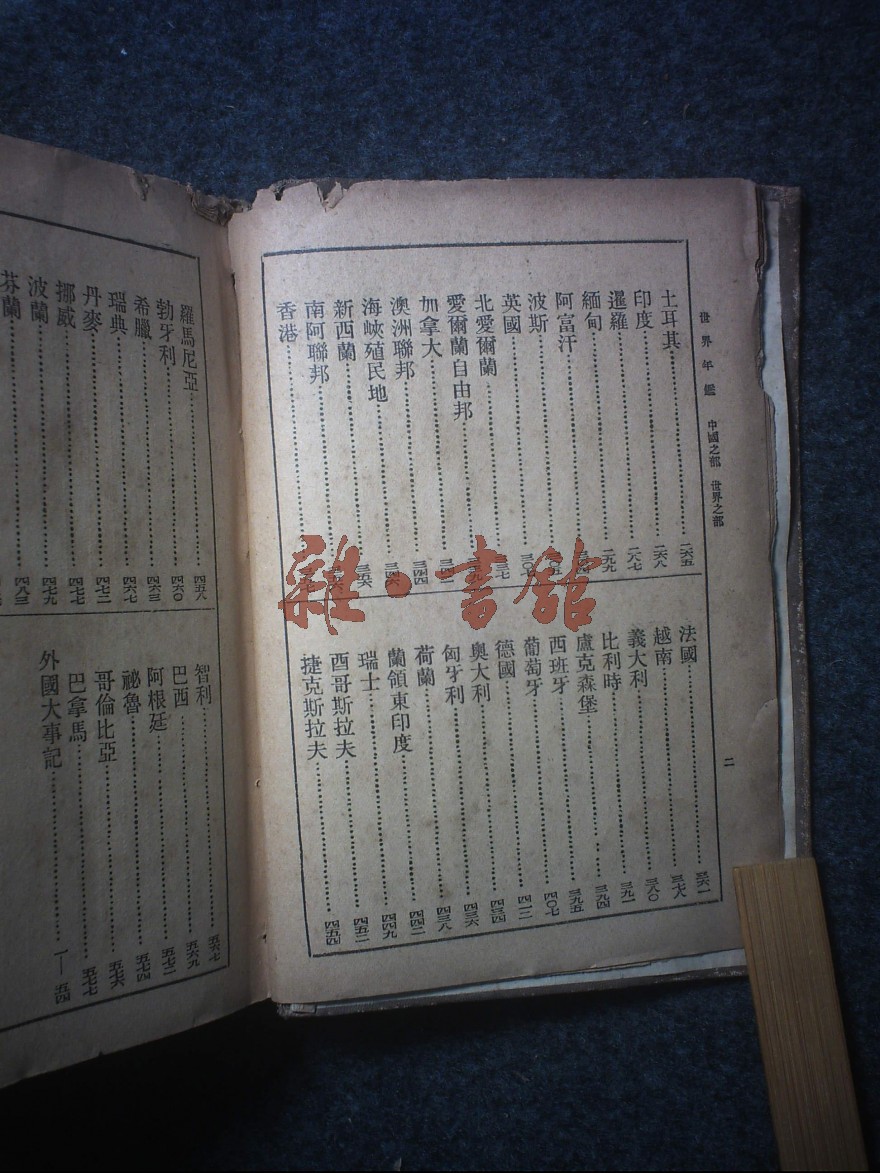 世界年鑑 中國之部 世界之部
二
土耳其……二六五
印度……二六八
暹羅……二八七
緬甸……二九九
阿富汗……
波斯……
英國……三〇七
北愛爾蘭……三三七
愛爾蘭自由邦……
加拿大……
澳洲聯邦……三四四
海峽殖民地……三四六
新西蘭……三五六
南阿聯邦……
香港……
法國……三六一
越南……三七八
義大利……三八〇
比利時……三九一
盧克森堡……三九四
西班牙……三九五
葡萄牙……四〇七
德國……四一二
奧大利……四三四
匈牙利……四三六
荷蘭……四三八
蘭領東印度……四四二
瑞士……四四九
酉哥斯拉夫……四五二
捷克斯拉夫……四五四
羅馬尼亞……四五八
勃牙利……四六〇
希臘……四六三
瑞典……四六七
丹麥……四七二
挪威……四七七
波蘭……四七九
芬蘭……四八三
智利……五六七
巴西……五六九
阿根廷……五七二
祕魯……五七四
哥倫比亞……五七六
巴拿馬……五七七
外國大事記……一—五四
雜·書館